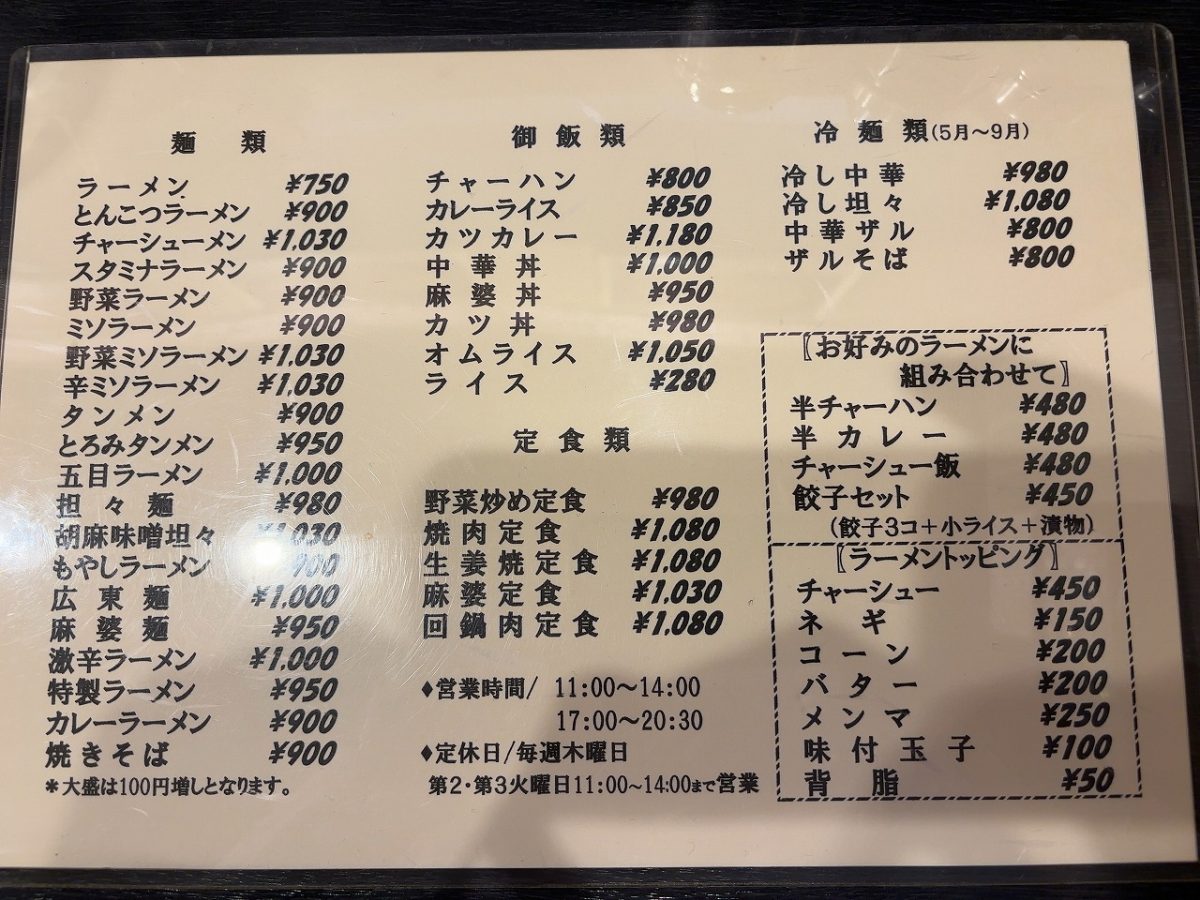 麺類
ラーメン ¥750
とんこつラーメン ¥900
チャーシューメン ¥1,030
スタミナラーメン ¥900
野菜ラーメン ¥900
ミソラーメン ¥900
野菜ミソラーメン ¥1,030
辛ミソラーメン ¥1,030
タンメン ¥900
とろみタンメン ¥950
五目ラーメン ¥1,000
担々麺 ¥980
胡麻味噌坦々 ¥1,030
もやしラーメン 900
広東麺 ¥1,000
麻婆麺 ¥950
激辛ラーメン ¥1,000
特製ラーメン ¥950
カレーラーメン ¥900
焼きそば ¥900
*大盛は100円増しとなります。
御飯類
チャーハン ¥800
カレーライス ¥850
カツカレー ¥1,180
中華丼 ¥1,000
麻婆丼 ¥950
カツ丼 ¥980
オムライス ¥1,050
ライス ¥280
定食類
野菜炒め定食 ¥980
焼肉定食 ¥1,080
生姜焼定食 ¥1,080
麻婆定食 ¥1,030
回鍋肉定食 ¥1,080
♦営業時間/ 11:00～14:00
17:00～20:30
♦定休日/毎週木曜日
第2・第3火曜日11:00～14:00まで営業
冷麺類(5月～9月)
冷し中華 ¥980
冷し坦々 ¥1,080
中華ザル ¥800
ザルそば ¥800
〖お好みのラーメンに
組み合わせて〗
半チャーハン ¥480
半カレー ¥480
チャーシュー飯 ¥480
餃子セット ¥450
(餃子3コ+小ライス+漬物)
〖ラーメントッピング〗
チャーシュー ¥450
ネギ ¥150
コーン ¥200
バター ¥200
メンマ ¥250
味付玉子 ¥100
背脂 ¥50